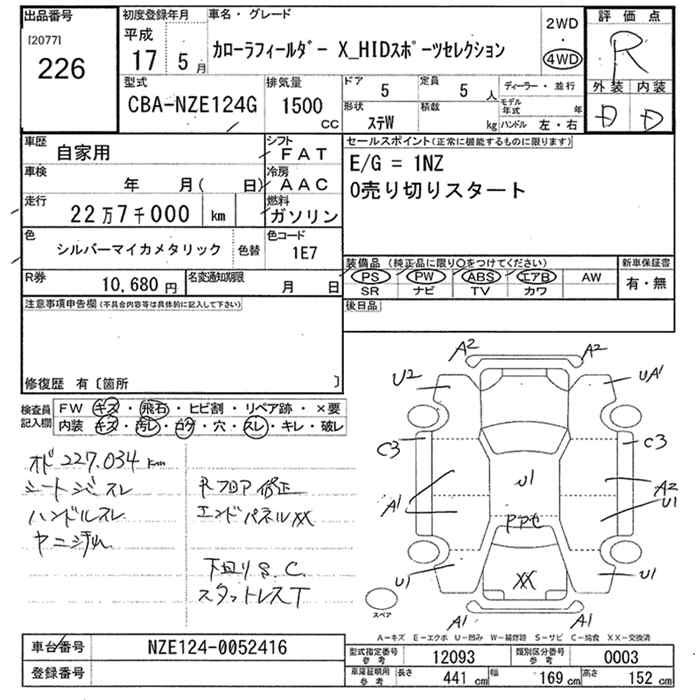 出品番号
[2077]
226
初度登録年月
平成
17 5月
車名・グレード
カローラフィールダー X_HIDスポーツセレクション
2WD
・
4WD
評価点
R
外装 内装
D D
型式
CBA-NZE124G
排気量
1500
CC
ドア 5
定員 5 人
形状
ステW
積載 kg
ディーラー・並行
モデル年式 年
ハンドル 左・右
車歴
自家用
シフト
FAT
車検
年 月( 日)
冷房
AAC
走行
22万7千000 km
燃料
ガソリン
色
シルバーマイカメタリック
色替
色コード
1E7
R券
10,680 円
名変通知期限
月 日
セールスポイント(正常に機能するものに限ります)
E/G = 1NZ
0売り切りスタート
装備品(純正品に限り○をつけてください)
PS PW ABS エアB AW
SR ナビ TV カワ
新車保証書
有・無
後日品
注意事項申告欄(不具合内容等は具体的に記入して下さい)
修復歴 有〔箇所 〕
検査員
記入欄
FW キズ・飛石・ヒビ割・リペア跡・×要
内装 キズ・汚レ・コゲ・穴・スレ・キレ・破レ
オド227.034km
シートシミスレ
ハンドルスレ
ヤニ汚れ
Rフロア修正
エンドパネルXX
下廻りS.C.
スタットレスT
A2 A2
U2 UA1
C3 C3
A1 U1 A2
U1
PPセ
U1 XX U1
A1 A1
スペア
A-キズ E-エクボ U-凹み W-補修跡 S-サビ C-腐食 XX-交換済
車台番号
NZE124-0052416
登録番号
型式指定番号
参考
12093
類別区分番号
参考
0003
車庫証明用
参考
長さ 441 cm
幅 169 cm
高さ 152 cm